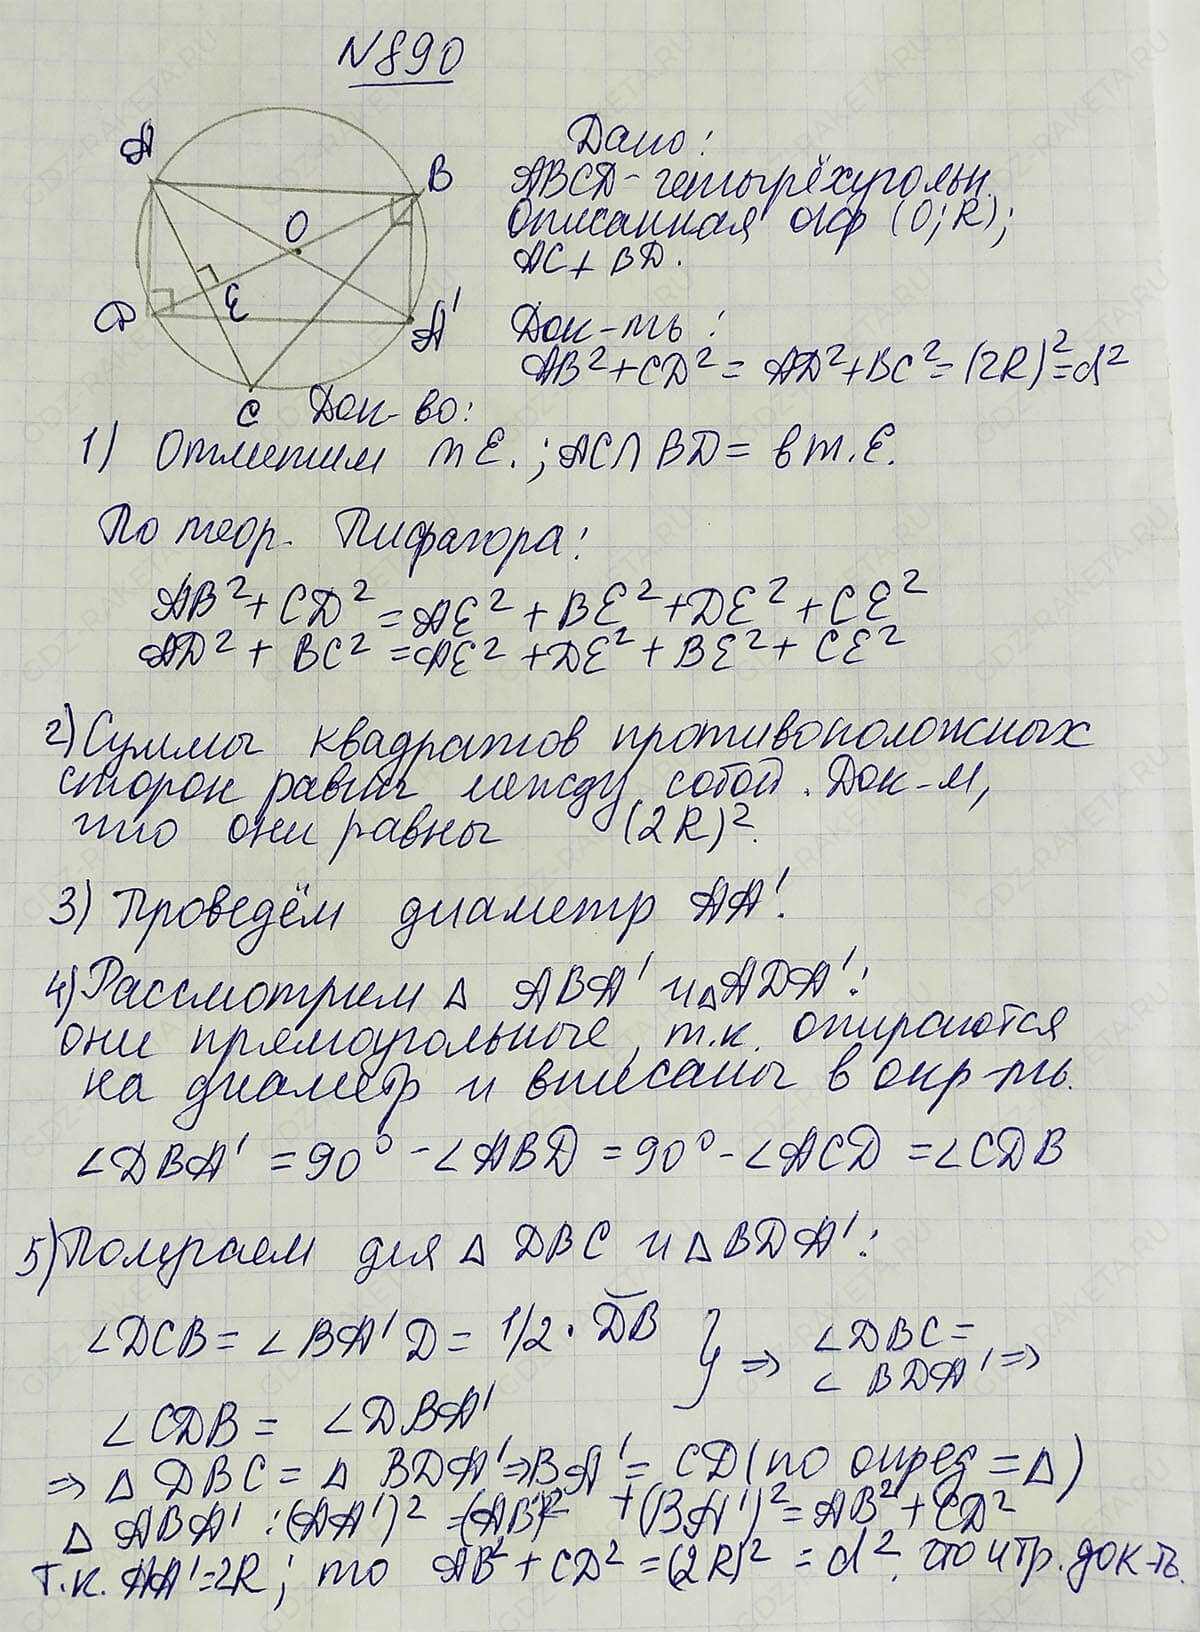 N890
A
B
O
D
E
A'
C
Дано:
ABCD - четырёхугольн.
Описанная окр (O; R);
AC ⊥ BD.
Док-ть:
AB² + CD² = AD² + BC² = (2R)² = d²
Док-во:
1) Отметим т E.; AC ∩ BD = в т. E.
По теор. Пифагора:
AB² + CD² = AE² + BE² + DE² + CE²
AD² + BC² = AE² + DE² + BE² + CE²
2) Суммы квадратов противоположных
сторон равны между собой. Док-м,
что они равны (2R)².
3) Проведём диаметр AA'.
4) Рассмотрим △ ABA' и △ ADA':
они прямоугольные, т.к. опираются
на диаметр и вписаны в окр-ть.
∠DBA' = 90° - ∠ABD = 90° - ∠ACD = ∠CDB
5) Получаем для △ DBC и △ BDA':
∠DCB = ∠BA'D = 1/2 · ◡DB } ⇒ ∠DBC =
∠BDA' ⇒
∠CDB = ∠DBA'
⇒ △ DBC = △ BDA' ⇒ BA' = CD (по опред = △)
△ ABA' : (AA')² = (AB)² + (BA')² = AB² + CD²
т.к. AA' = 2R; то AB² + CD² = (2R)² = d², что и тр. док-ть.
GDZ-RAKETA.RU